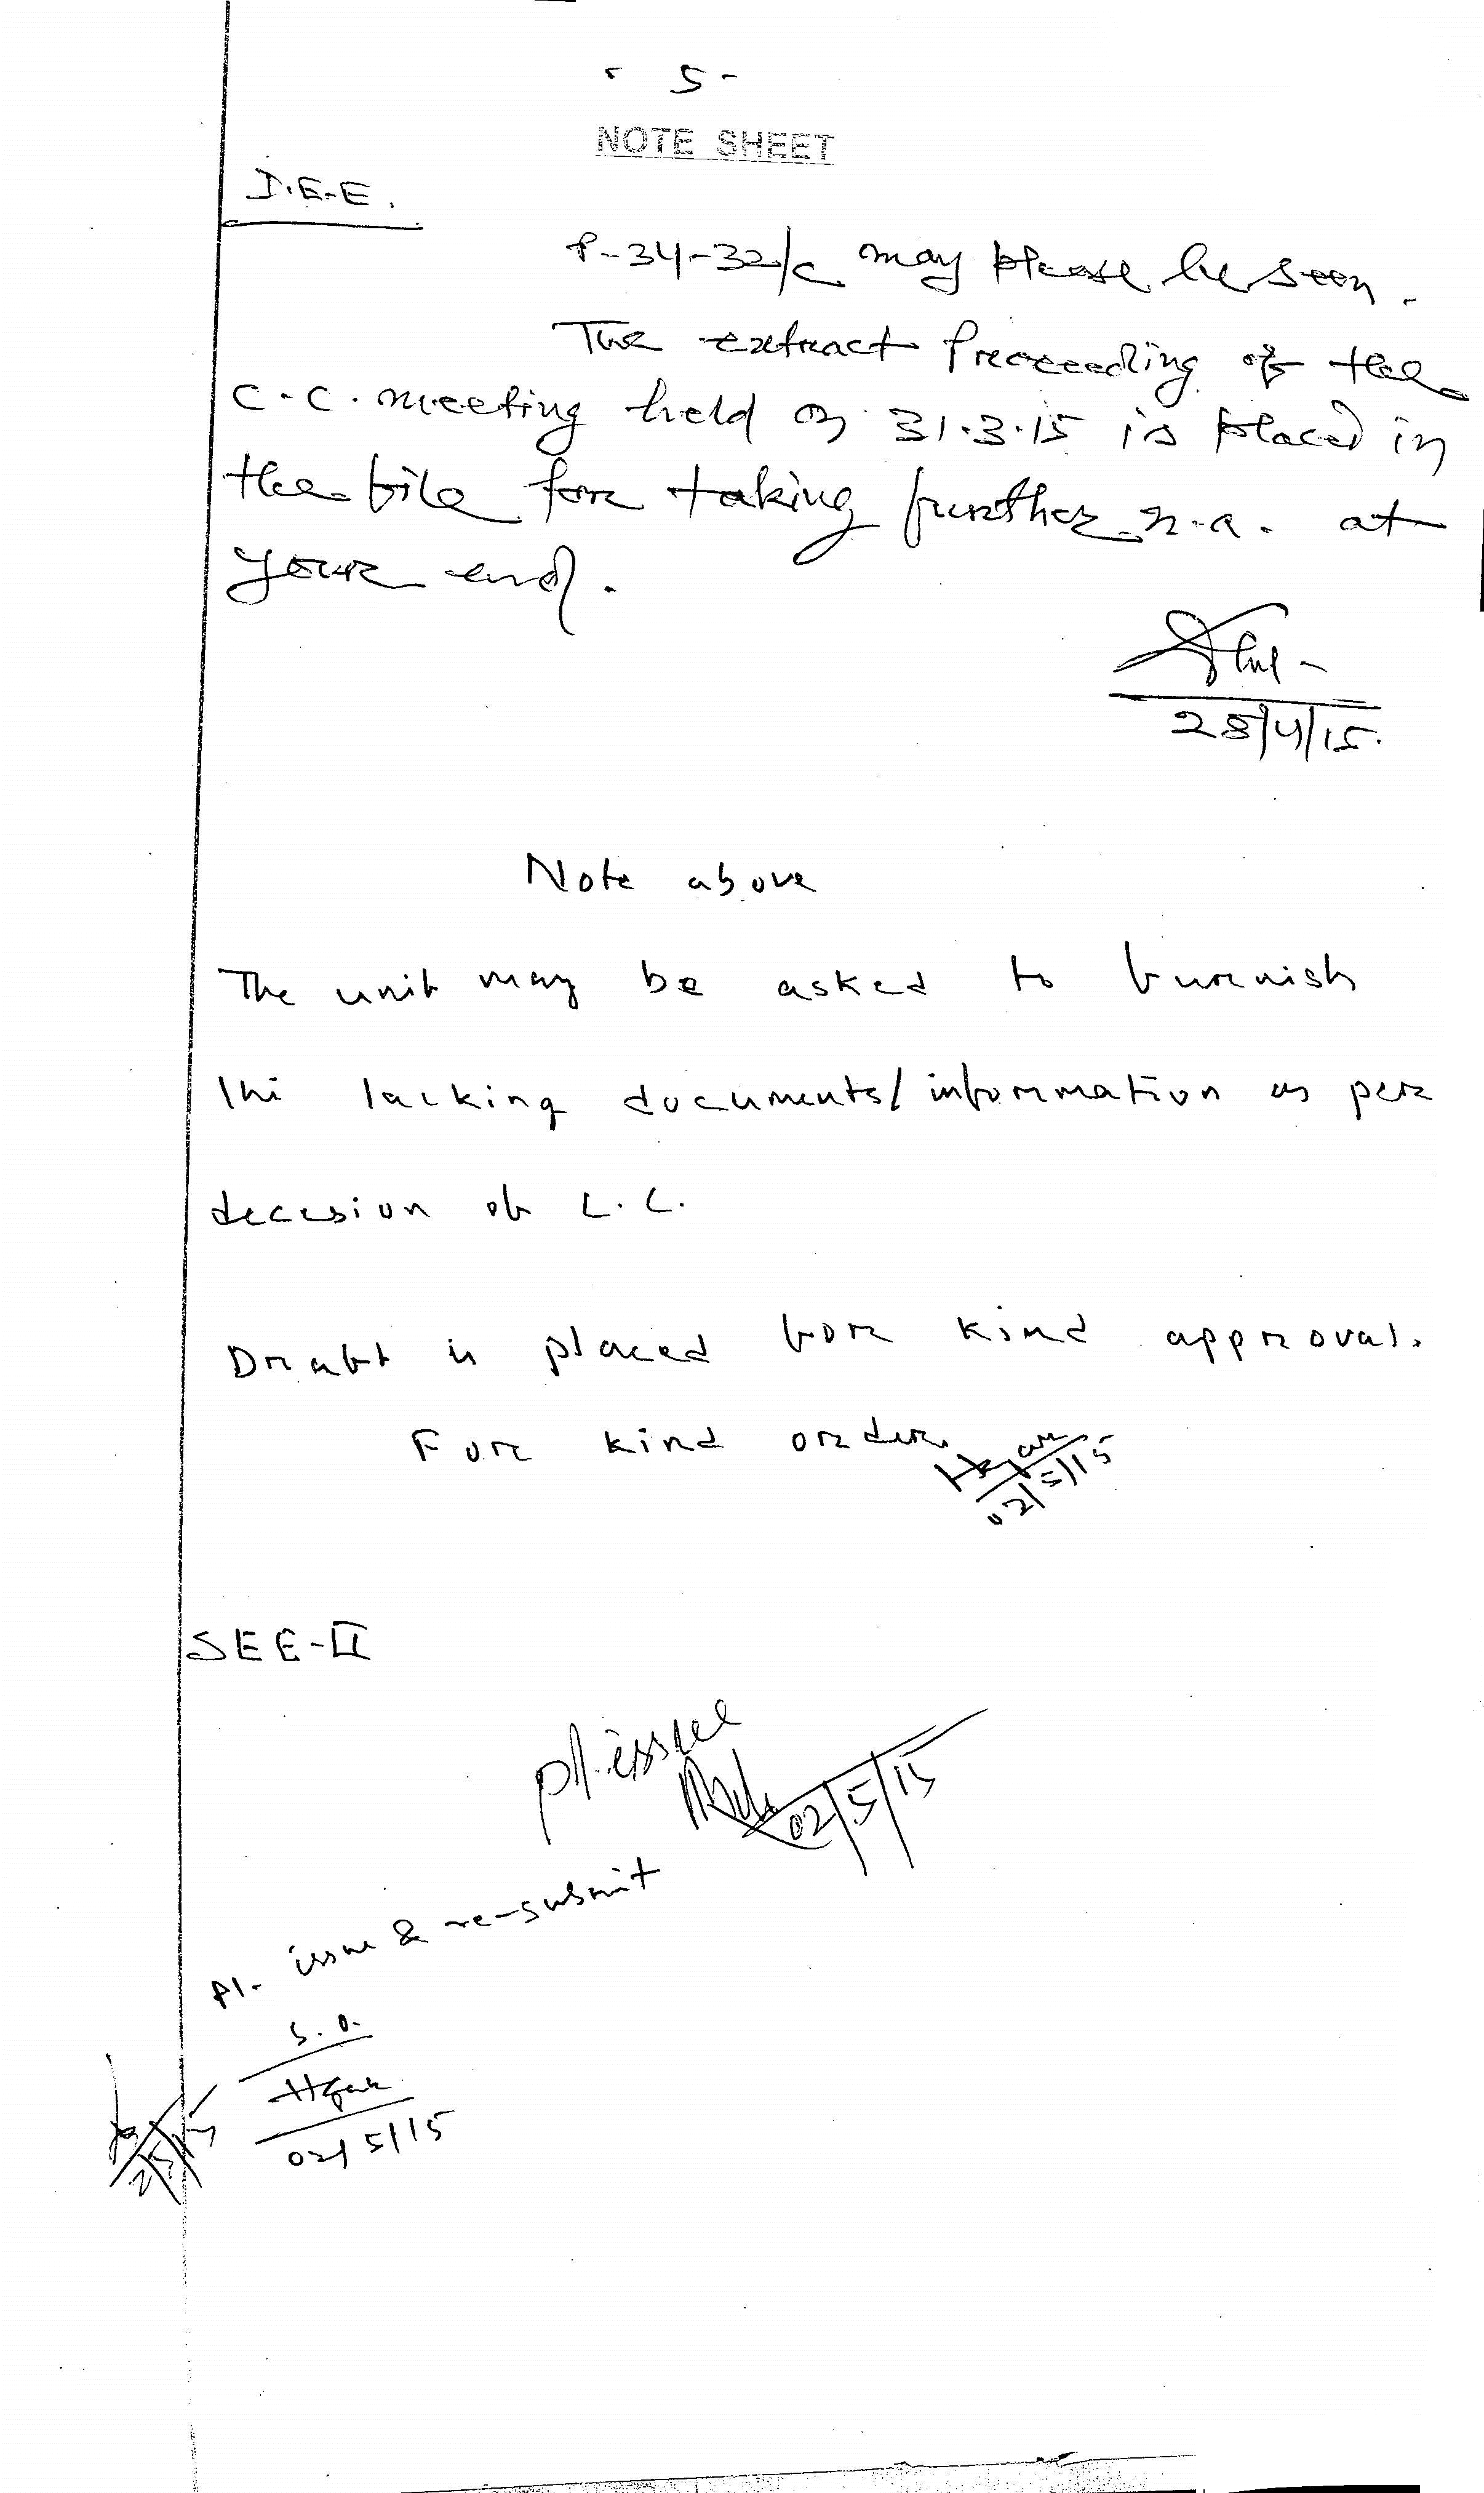 - 5 -
NOTE SHEET
D.E.E.
P-34-32/c may please be seen.
The extract proceeding of the
C.C. meeting held on 31.3.15 is placed in
the file for taking further n.a. at
your end.
28/4/15.
Note above
The unit may be asked to furnish
the lacking documents/information as per
decesion of C.C.
Draft is placed for kind approval.
For kind order.
02/5/15
SEE-II
pl. issue
02/5/15
Pl. issue & re-submit
S.O.
02/5/15
2/5/15